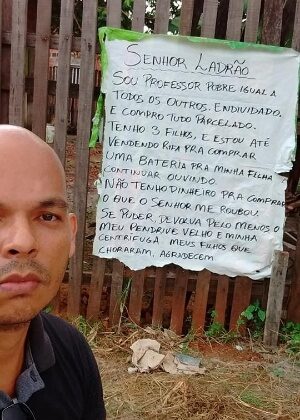 SENHOR LADRÃO
SOU PROFESSOR POBRE IGUAL A
TODOS OS OUTROS. ENDIVIDADO,
E COMPRO TUDO PARCELADO.
TENHO 3 FILHOS, E ESTOU ATÉ
VENDENDO RIFA PRA COMPRAR
UMA BATERIA PRA MINHA FILHA
CONTINUAR OUVINDO.
NÃO TENHO DINHEIRO PRA COMPRAR
O QUE O SENHOR ME ROUBOU.
SE PUDER, DEVOLVA PELO MENOS O
MEU PENDRIVE VELHO E MINHA
CENTRÍFUGA. MEUS FILHOS QUE
CHORARAM, AGRADECEM